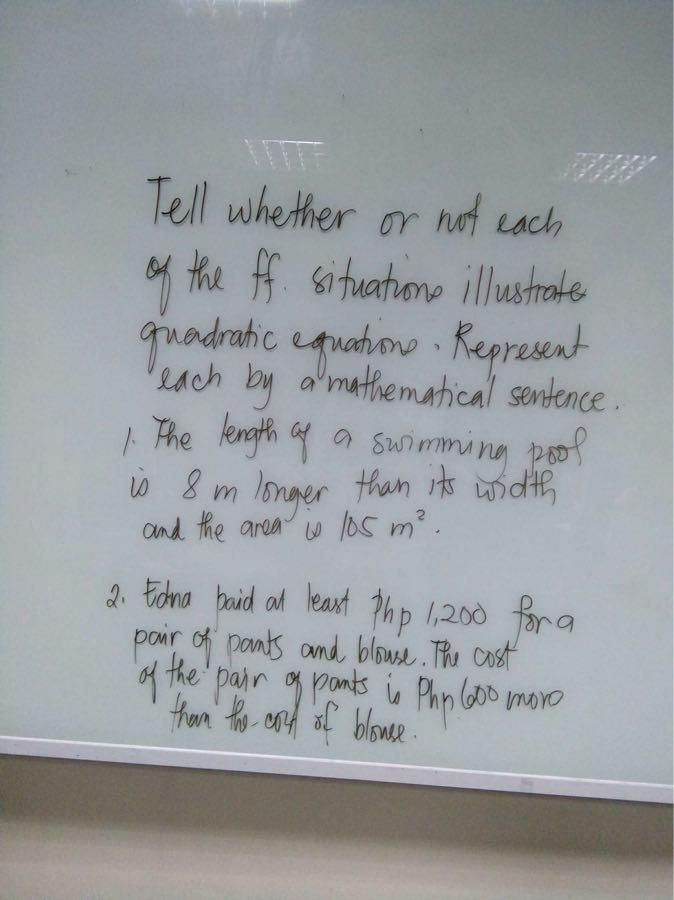 Tell whether or not each
of the ff. situations illustrate
quadratic equations. Represent
each by a mathematical sentence.
1. The length of a swimming pool
is 8 m longer than its width
and the area is 105 m².
2. Edna paid at least Php 1,200 for a
pair of pants and blouse. The cost
of the pair of pants is Php 600 more
than the cost of blouse.